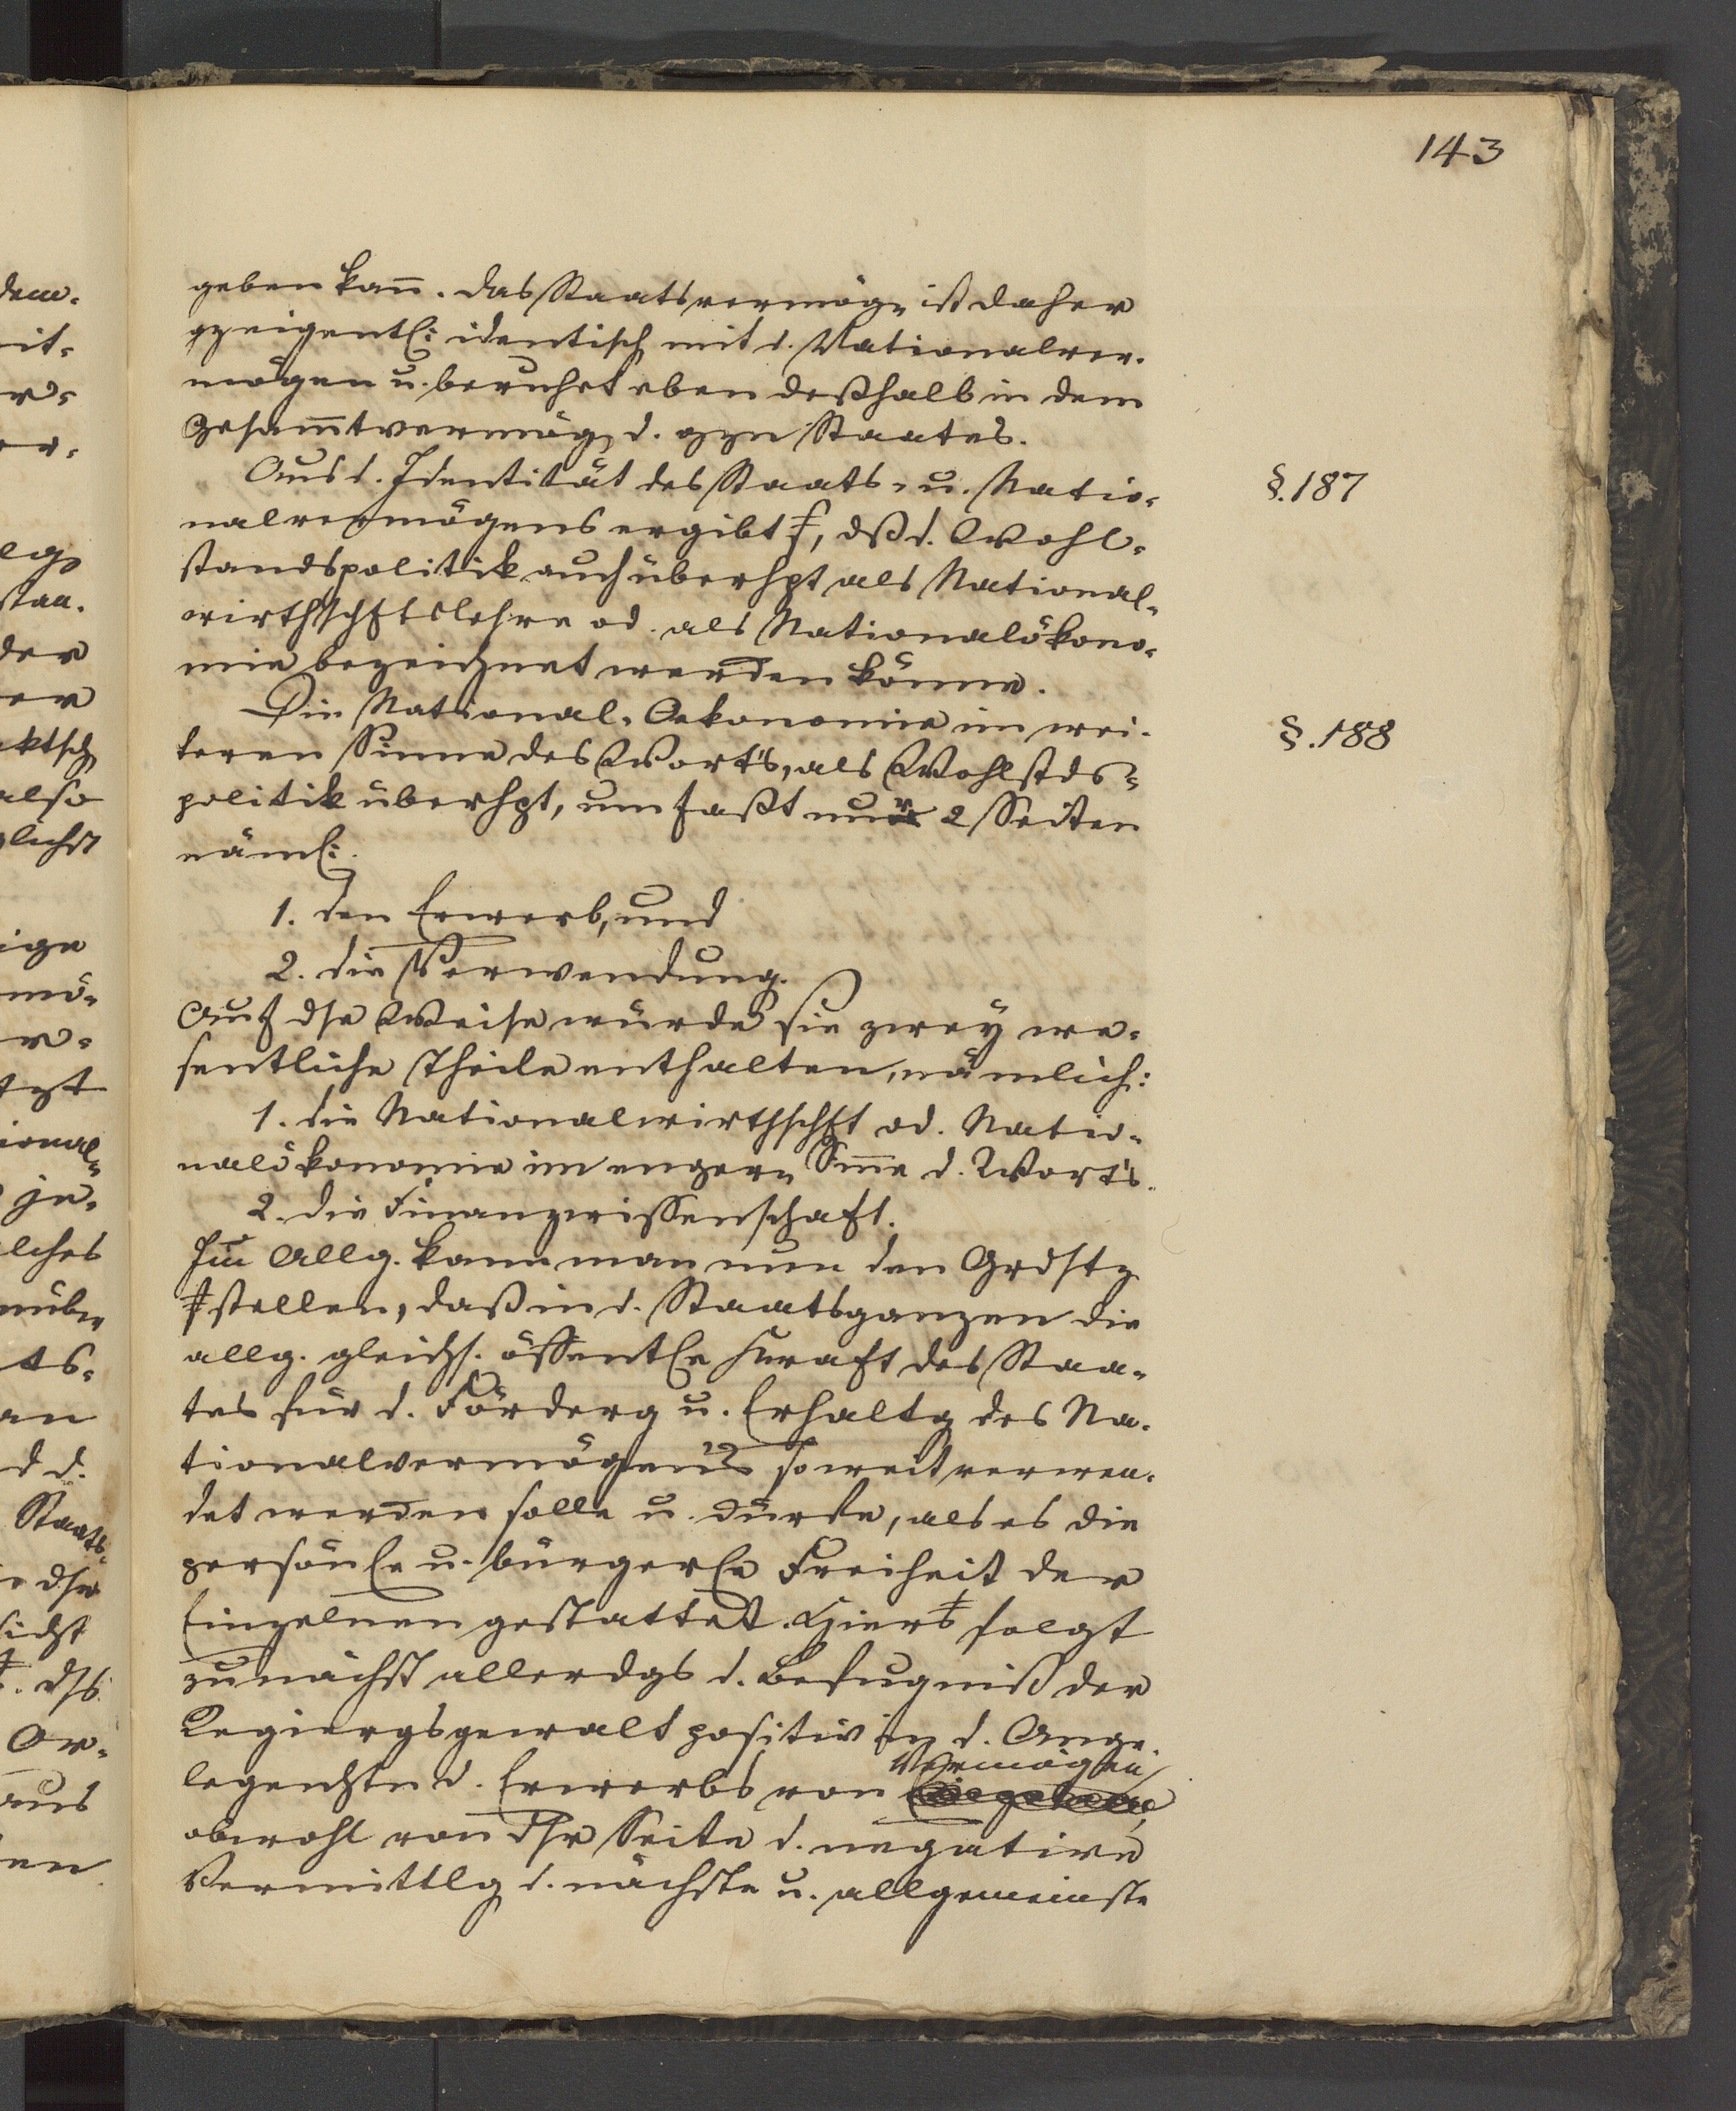 143
geben kañ. das Staatsvermög. ist daher
gz eigentl: identisch mit d. Nationalver-
mögen u. beruhet eben deßhalb in dem
Gesam̃tvermög. d. gzn Staates.
Aus d. Identität des Staats- u. Natio- §.187
nalvermögens ergibt , dß d. Wohl-
standspolitik auch überhpt als National-
wirthschftslehre od. als Nationalökono-
mie bezeichnet werden könne.
Die National-Oekonomie im wei- §.188
teren Sinne des Wort's, als Wohlstds-
politik überhpt, umfaßt nur 2 Seiten
näml:
1. den Erwerb, und
2. die Verwendung.
Auf dse Weise würde sie zwey we-
sentliche Theile enthalten, nämlich:
1. die Nationalwirthschft od. Natio-
nalökonomie im engern Siñe d. Wort's.
2. die Finanzwissenschaft.
Im Allg. kann man nun den Grdstz
stellen, daß in d. Staatsganzen die
allg. gleichs. öffentle Kraft des Staa-
tes für d. Förderg u. Erhaltg des Na-
tionalvermögens soweit verwen-
det werden solle u. dürfe, als es die
persönle u. bürgerle Freiheit der
Einzelnen gestattet. Hiers folgt
zunächst allerdgs d. Befugniß der
Regiergsgewalt positiv in d. Ange-
legenhtn d. Erwerbs von Vermögen,
obwohl von dsr Seite d. negative
Vermittlg d. nächste u. allgemeinste